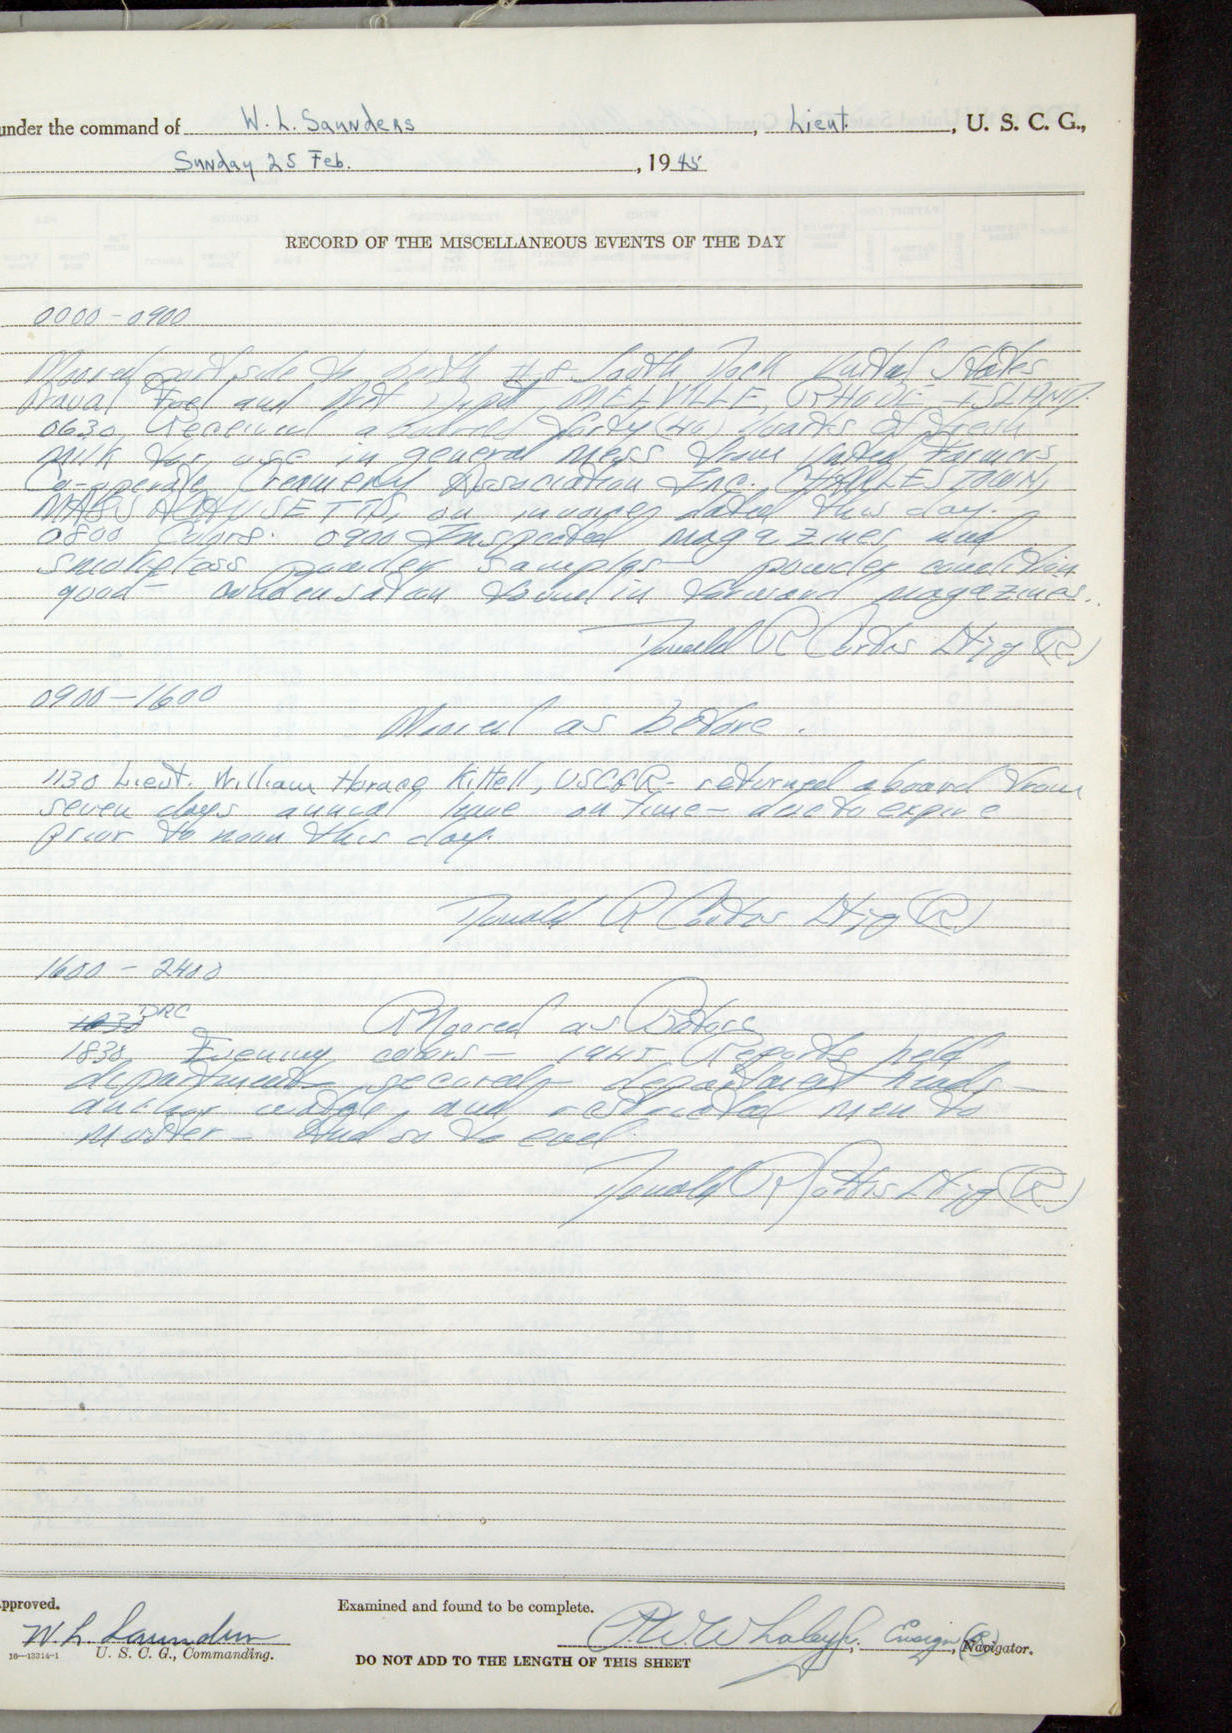 under the command of W. L. Saunders, Lieut., U. S. C. G.,
Sunday 25 Feb., 1945
RECORD OF THE MISCELLANEOUS EVENTS OF THE DAY
0000-0900
Moored port side to berth #8 South Dock United States
Naval Fuel and Net Depot MELVILLE, RHODE ISLAND.
0630 Received aboard forty (40) quarts of fresh
milk for use in general mess from United Farmers
Co-operate Creamery Association Inc., CHARLESTOWN,
MASSACHUSETTS, on invoice dated this day.
0800 Colors. 0900 Inspected magazines and
smokeless powder samples - powder condition
good - condensation found in forward magazines.
Donald R Ltjg (R)
0900-1600
Moored as before.
1130 Lieut. William Horace Kittell, USCGR - returned aboard from
seven days annual leave on time - due to expire
prior to noon this day.
Donald R Ltjg (R)
1600 - 2400
DRC
Moored as Before
1830 Evening colors - 1945 Reports held
departments secured - department heads -
anchor watch, and restricted men to
muster - And so to end.
Donald R Ltjg (R)
Approved.
W. L. Saunders
U. S. C. G., Commanding.
16-13314-1
Examined and found to be complete.
Ensign (R), Navigator.
DO NOT ADD TO THE LENGTH OF THIS SHEET